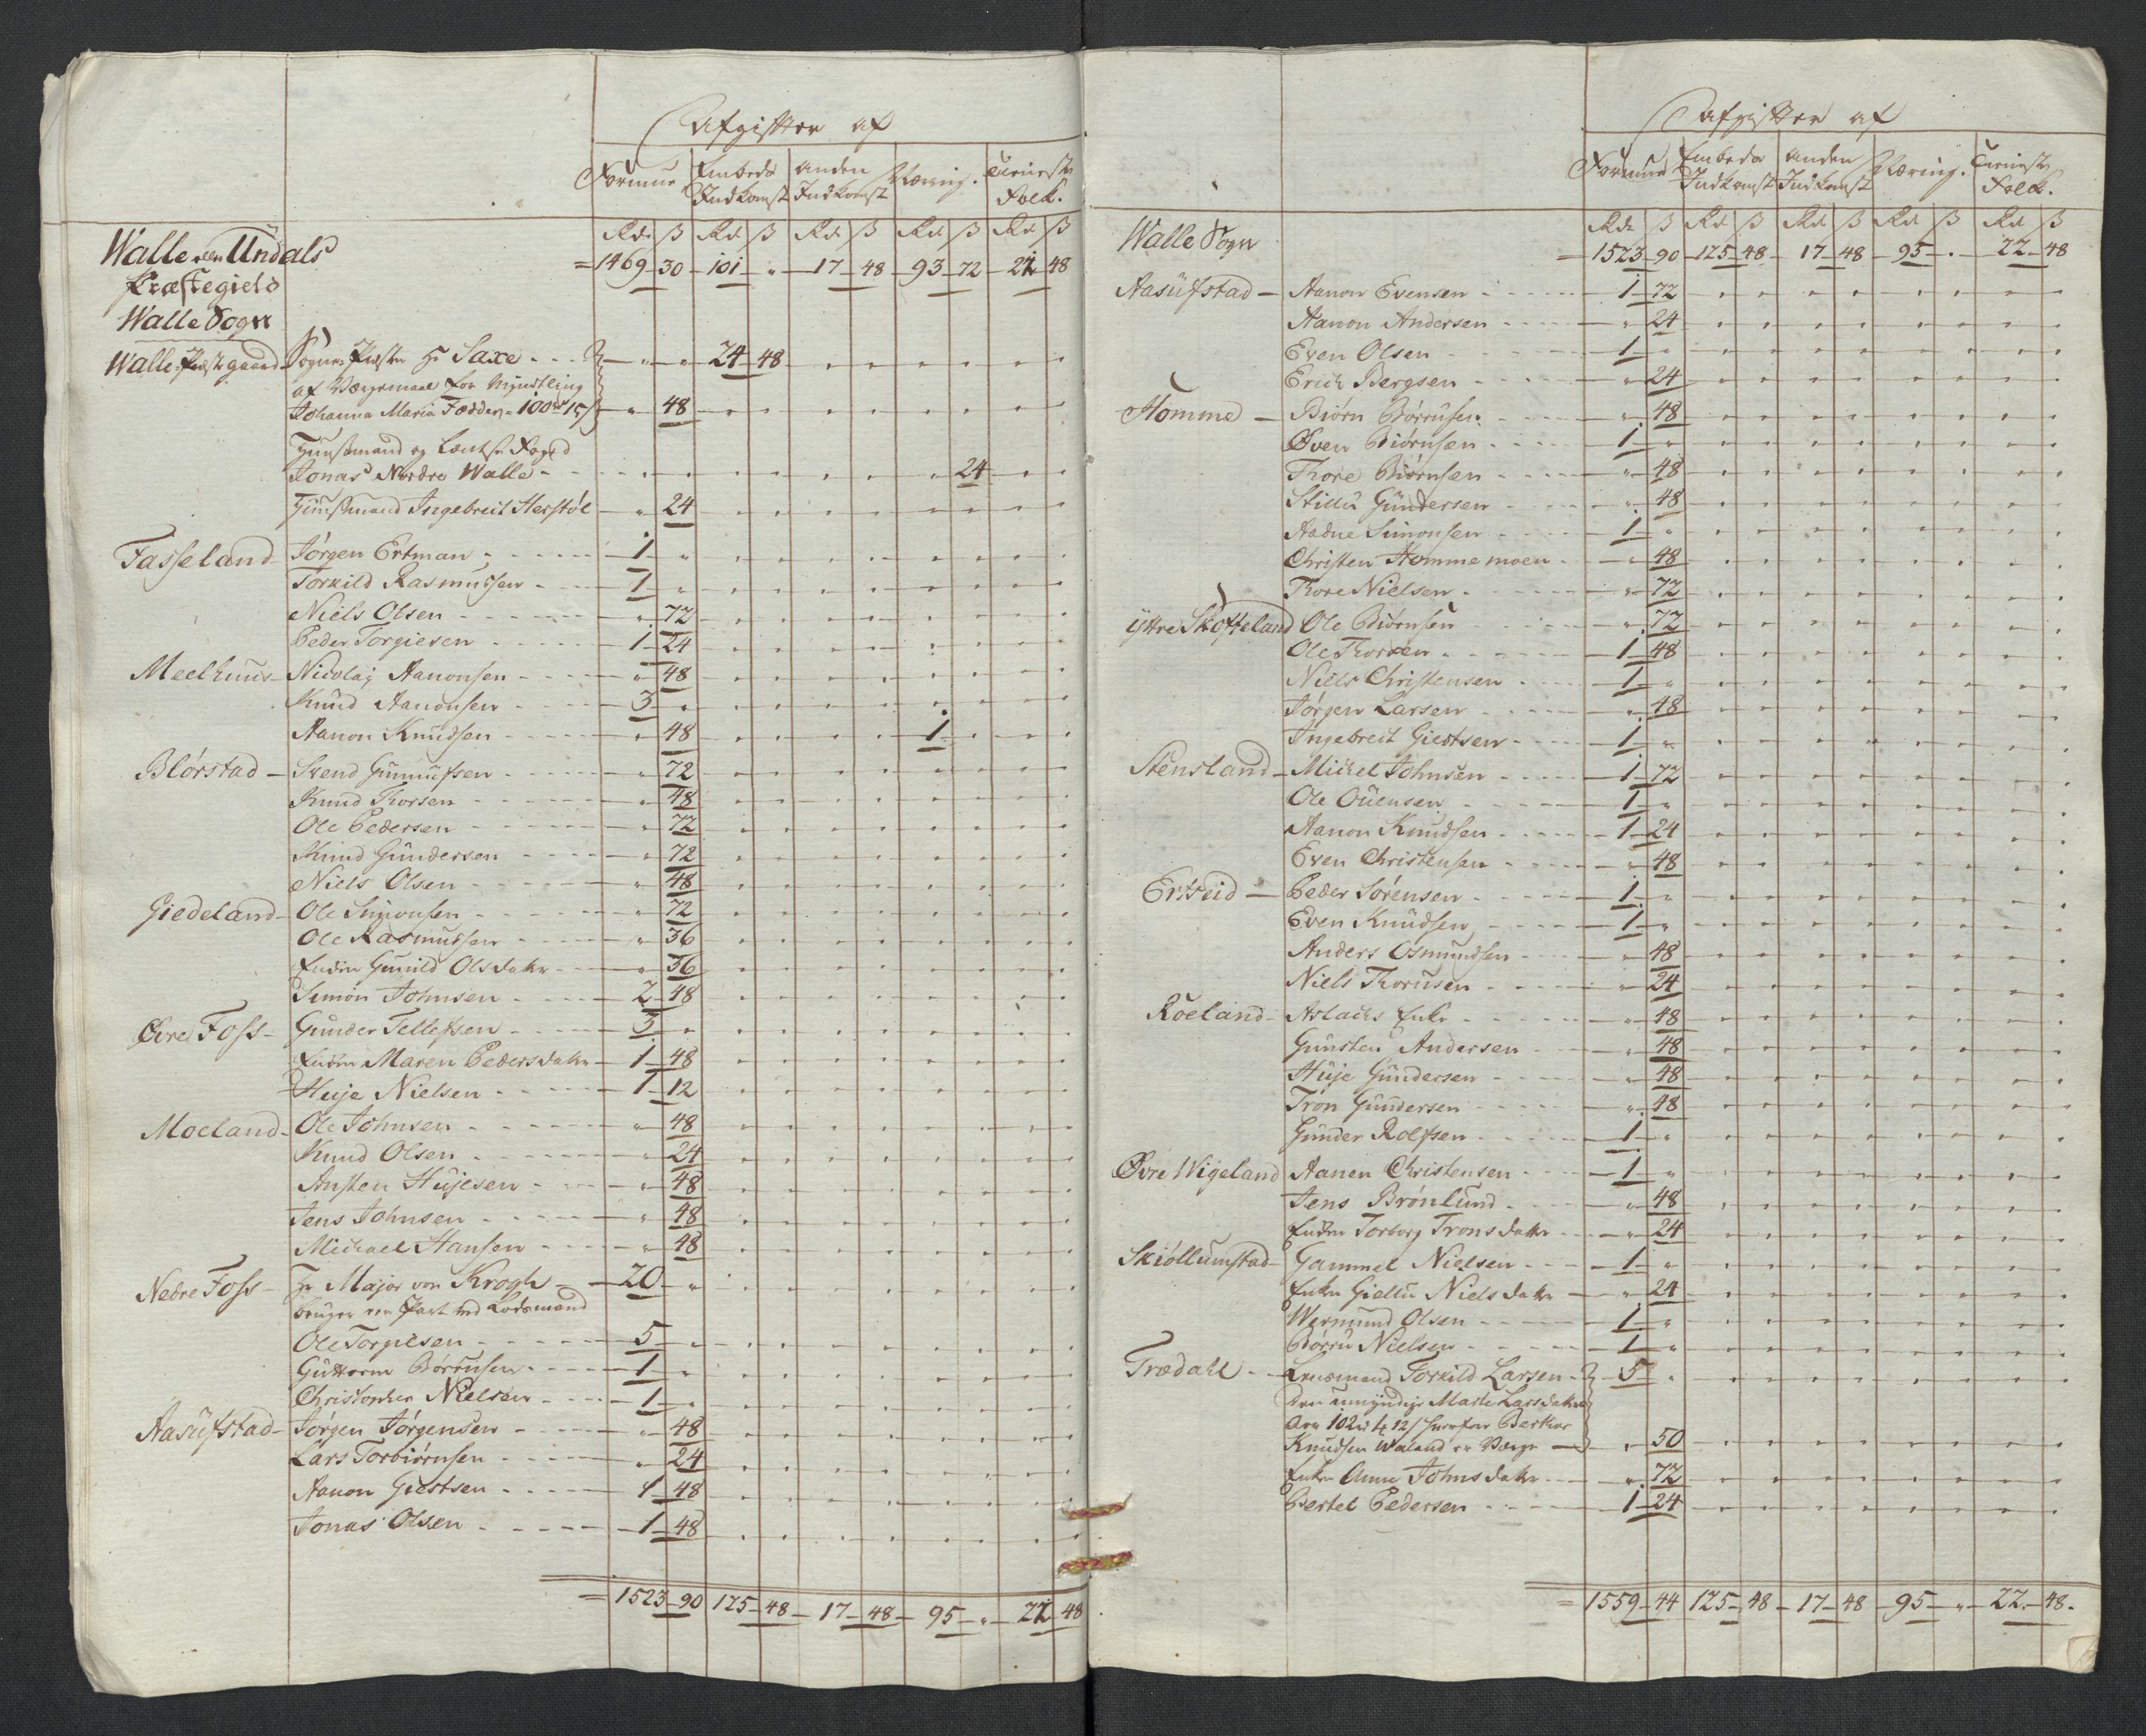 Afgifter af
Formue Embeds Indkomst anden Indkomst Næring. Tieniste Folk.
Rdr ß Rd ß Rd ß Rd ß Rd ß
Walle eller Undals
Præstegield
= 1469 30 101 " 17 48 93 72 22 48
Walle Sogn
Walle Præstgaard Sogne Præsten Hr Saxe " " 24 48
af Værgemaal for Myndtling
Johanna Maria Fædder 100 rd 15 ß " 48
Huusmand og Lænsk Foged
Jonas Nordre Walle " 24
Huusmand Ingebreit Herstøl " 24
Fasseland Jørgen Ertman 1 "
Torkild Rasmussen 1 "
Niels Olsen " 72
Peder Torgiesen 1 24
Meelhuus Nicolaj Aanonsen " 48
Knud Aanonsen 3 "
Aanon Knudsen " 48 1
Blørstad Svend Gunnufsen " 72
Knud Thorsen " 48
Ole Pedersen " 72
Knud Gundersen " 72
Niels Olsen " 48
Giedeland Ole Simonsen " 72
Ole Rasmussen " 36
Enken Gunild Olsdatter " 36
Simon Johnsen 2 48
Øvre Foss Gunder Tellefsen 3 "
Enken Maren Pedersdatter 1 48
Huje Nielsen 1 12
Moeland Ole Johnsen " 48
Knud Olsen " 24
Ansten Hujesen " 48
Jens Johnsen " 48
Michael Hansen " 48
Nedre Foss Hr Major von Krogh 20 "
bruger een Part med Lodsmand
Ole Torgiesen 5 "
Guttorm Børrusen 1 "
Christopher Nielsen 1 "
Aasufstad Jørgen Jørgensen " 48
Lars Torbiørnsen " 24
Aanon Giestsen 1 48
Jonas Olsen 1 48
= 1523 90 125 48 17 48 95 " 22 48
Afgifter af
Formue Embeds Indkomst anden Indkomst Næring. Tieniste Folk.
Rdr ß Rd ß Rd ß Rd ß Rd ß
Walle Sogn
= 1523 90 125 48 17 48 95 " 22 48
Aasufstad Aanon Evensen 1 72
Aanon Andersen " 24
Even Olsen 1 "
Erich Bergsen " 24
Homme Biørn Børrusen " 48
Øven Biørnsen 1 "
Thore Biørnsen " 48
Stillu Gundersen " 48
Aadne Simonsen 1 "
Christen Hommemoen " 48
Thore Nielsen " 72
Yttre Skofteland Ole Biørnsen " 72
Ole Thorsen 1 48
Niels Christensen 1 "
Jørgen Larsen " 48
Ingebreit Giestsen 1 "
Stensland Michel Johnsen 1 72
Ole Ouensen 1 "
Aanon Knudsen 1 24
Even Christensen " 48
Ertseid Peder Sørensen 1 "
Even Knudsen 1 "
Anders Osmundsen " 48
Niels Thorusen " 24
Roeland Aslachs Enke " 48
Gunsten Andersen " 48
Huje Gundersen " 48
Tron Gundersen " 48
Gunder Rolfsen 1 "
Øvre Wigeland Aanen Christensen 1 "
Jens Brønlund " 48
Enken Torborg Tronsdatter " 24
Skiøllumstad Gammel Nielsen 1 "
Enken Giellu Nielsdatter " 24
Wermund Olsen 1 "
Børru Nielsen 1 "
Trædahl Lensmand Torkild Larsen 5 "
Den umyndige Marte Larsdatter
Arv 102 rd 12 ß hvorfor
Knudsen Waland er Værge " 50
Enken Anne Johnsdatter " 72
Bertel Pedersen 1 24
= 1559 44 125 48 17 48 95 " 22 48.